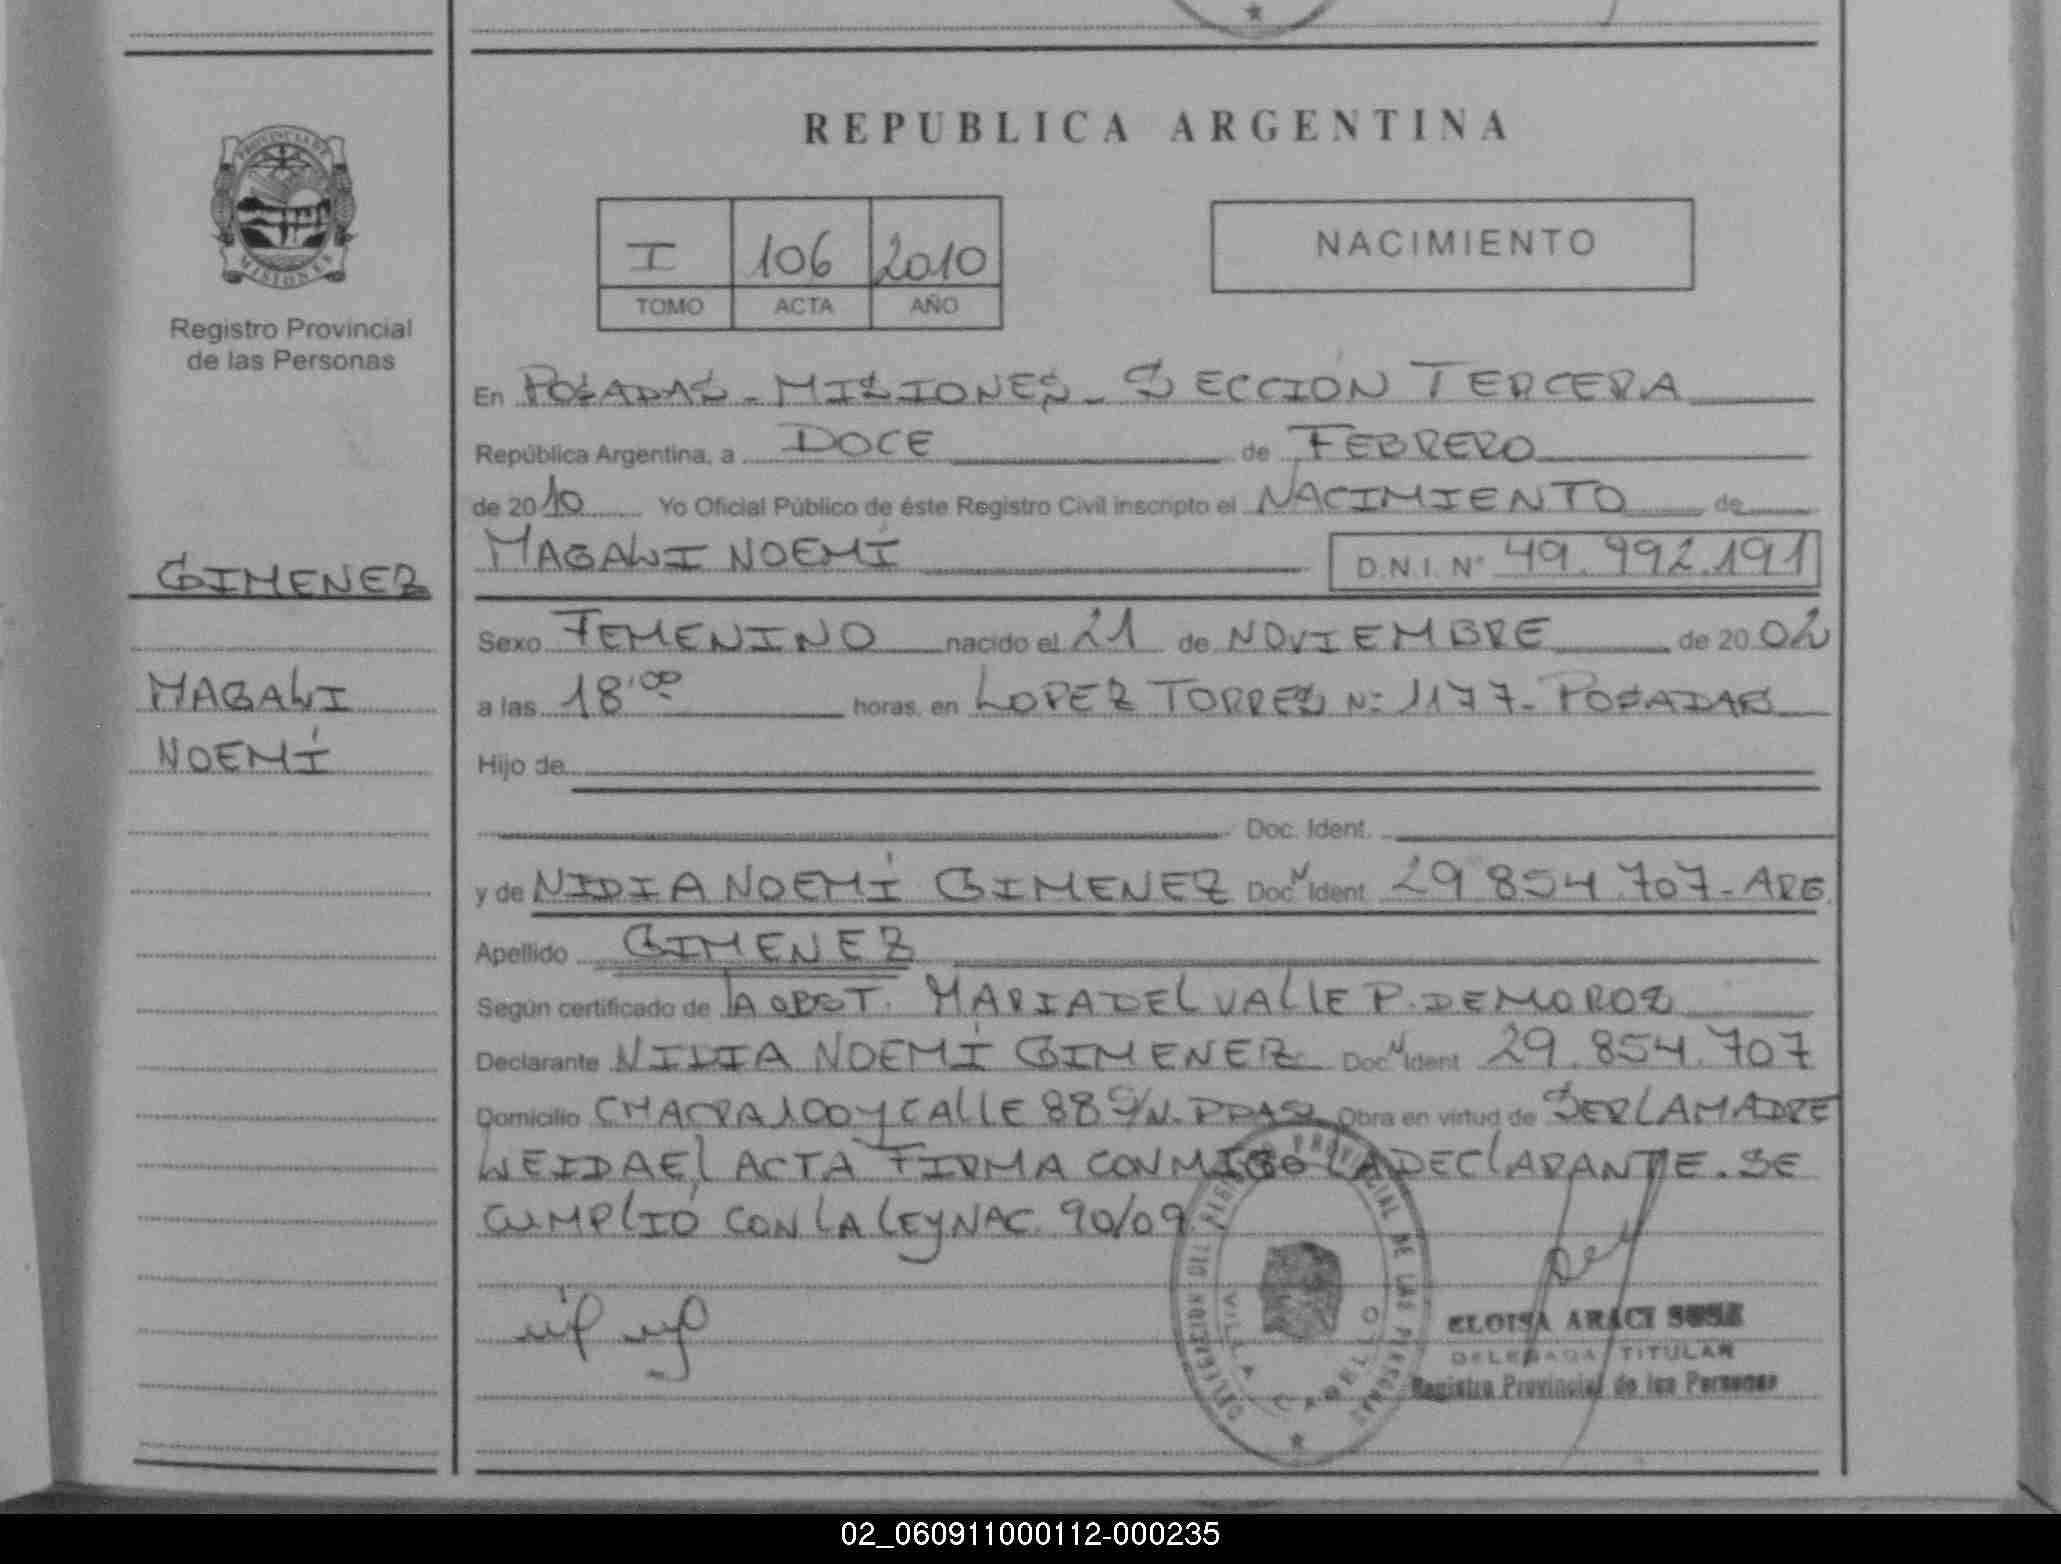 REPUBLICA ARGENTINA
PROVINCIA DE
MISIONES
Registro Provincial
de las Personas
I 106 2010
TOMO ACTA AÑO
NACIMIENTO
En POSADAS - MISIONES - SECCIÓN TERCERA
República Argentina, a DOCE de FEBRERO
de 2010 Yo Oficial Público de éste Registro Civil inscripto el NACIMIENTO de
MAGALI NOEMÍ D.N.I. Nº 49.992.191
GIMENEZ
MAGALI
NOEMÍ
Sexo FEMENINO nacido el 21 de NOVIEMBRE de 20 02
a las 18'00 horas, en LOPEZ TORRES Nº 1177 - POSADAS
Hijo de
Doc. Ident.
y de NIDIA NOEMÍ GIMENEZ Doc N Ident. 29 854.707 - ARG.
Apellido GIMENEZ
Según certificado de LA OBST. MARIA DEL VALLE P. DE MOROZ
Declarante NIDIA NOEMÍ GIMENEZ Doc N Ident 29.854.707
Domicilio CHACRA 100 y CALLE 88 S/N. PDAS. Obra en virtud de SER LA MADRE
LEIDA EL ACTA FIRMA CONMIGO LA DECLARANTE. SE
CUMPLIÓ CON LA LEY NAC. 90/09
DELEGACION DEL REGISTRO PROVINCIAL DE LAS PERSONAS
VILLA CABELLO
ELOISA ARACI
DELEGADA TITULAR
Registro Provincial de las Personas
02_060911000112-000235